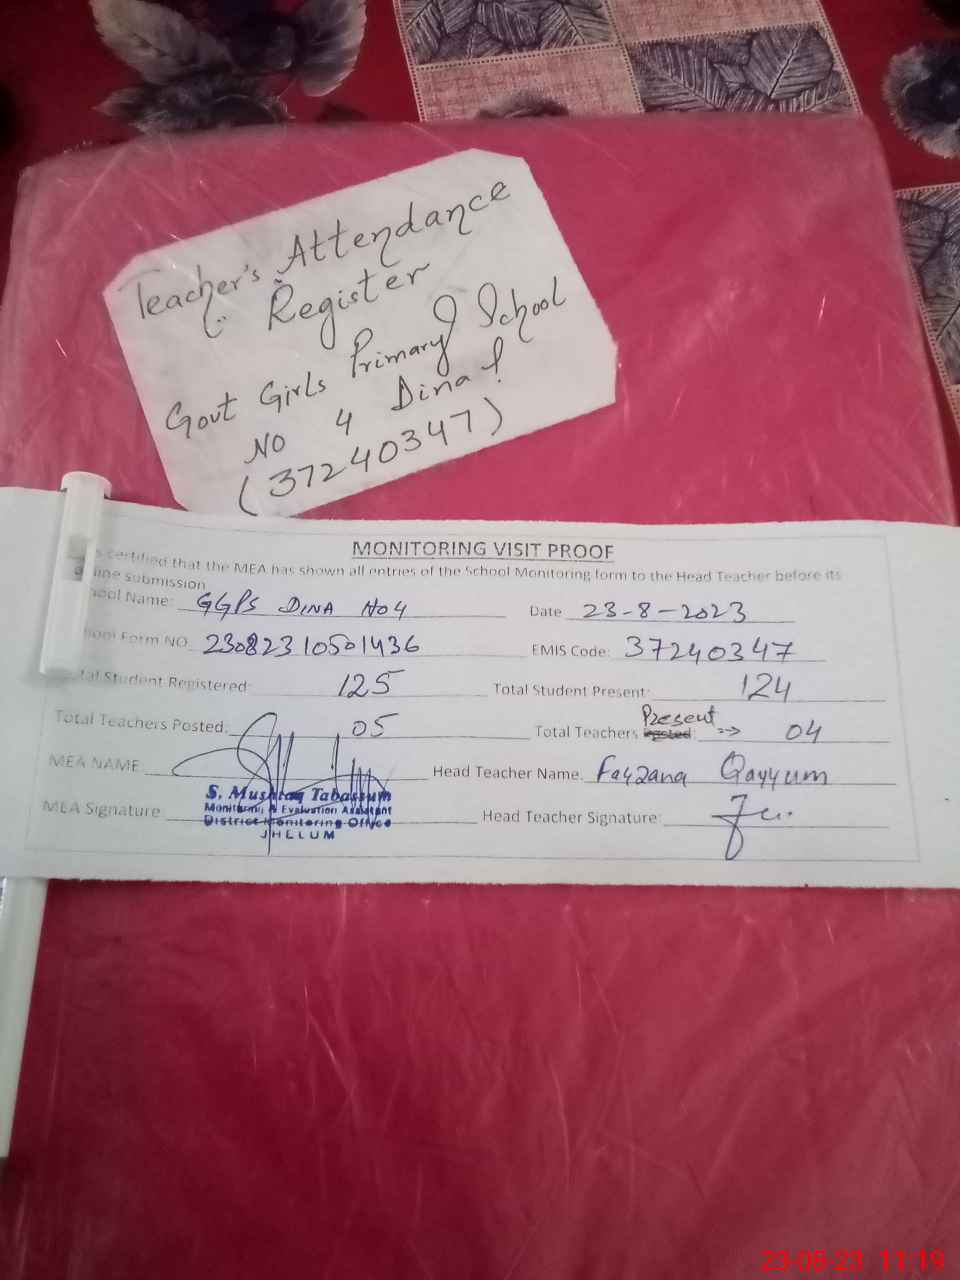 Teacher's Attendance
Register
Gout Girls Primary School
NO 4 Dina
(37240347)
MONITORING VISIT PROOF
s certified that the MEA has shown all entries of the School Monitoring form to the Head Teacher before its
line submission
hool Name: GGPS DINA NO4 Date 23-8-2023
hool Form NO 23082310501436 EMIS Code: 37240347
tal Student Registered: 125 Total Student Present: 124
Total Teachers Posted: 05 Total Teachers Present → 04
MEA NAME Head Teacher Name. Fayzana Qayyum
S. Mushtaq Tabassum
Monitoring & Evaluation Assistant
MEA Signature Head Teacher Signature:
District Monitoring Office
JHELUM
23-08-23 11:19